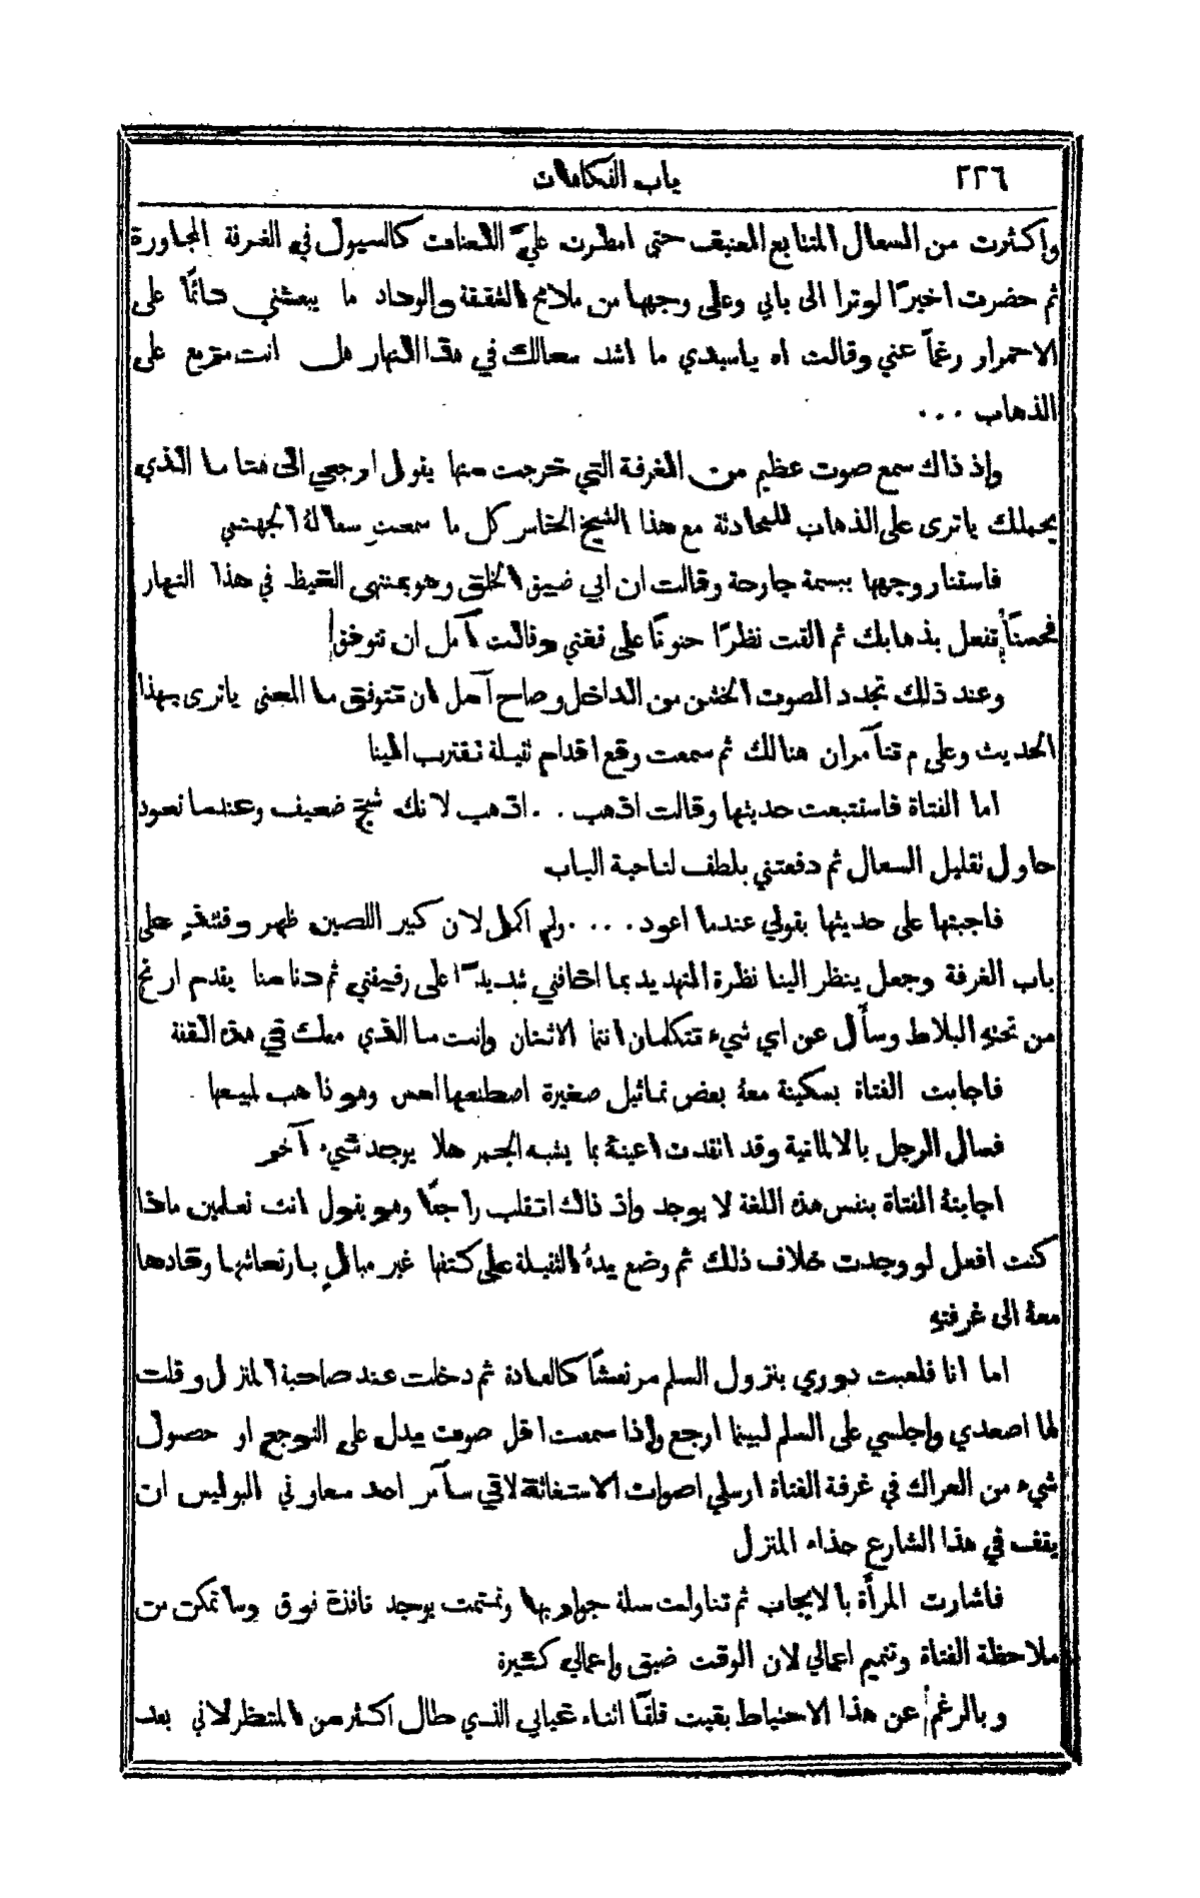 ٢٢٦ باب الفكاهات
واكثرت من السعال المتتابع العنيف حتى امطرت عليَّ اللعنات كالسيول في الغرفة المجاورة
ثم حضرت اخيرًا لوترا الى بابي وعلى وجهها من ملامح الشفقة والوداد ما يبعثني دائمًا على
الاحمرار رغماً عني وقالت اه ياسيدي ما اشد سعالك في هذا النهار هل انت مزمع على
الذهاب . . .
وإذ ذاك سمع صوت عظيم من الغرفة التي خرجت منها يقول ارجعي الى هنا ما الذي
يحملك ياترى على الذهاب للمحادثة مع هذا الشيخ الخناس كل ما سمعتِ سعالهُ الجهنمي
فاستنار وجهها ببسمة جارحة وقالت ان ابي ضيق الخلق وهو بمنتهى الغيظ في هذا النهار
فحسنًا تفعل بذهابك ثم القت نظرًا حنونًا على قفتي وقالت آمل ان تتوفق
وعند ذلك تجدد الصوت الخشن من الداخل وصاح آمل ان تتوفق ما المعنى ياترى بهذا
الحديث وعلى م تتآمران هنالك ثم سمعت وقع اقدام ثقيلة تقترب الينا
اما الفتاة فاستتبعت حديثها وقالت اذهب . . اذهب لانك شيخ ضعيف وعندما تعود
حاول تقليل السعال ثم دفعتني بلطف لناحية الباب
فاجبتها على حديثها بقولي عندما اعود . . . . ولم اكمل لان كبير اللصين ظهر وقتئذٍ على
باب الغرفة وجعل ينظر الينا نظرة التهديد بما اخافني شديدًا على رفيقتي ثم دنا منا بقدم ارتج
من تحتهِ البلاط وسأل عن اي شيء تتكلمان انتما الاثنان وانت ما الذي معك في هذه القفة
فاجابت الفتاة بسكينة معهُ بعض تماثيل صغيرة اصطنعها امس وهو ذاهب لبيعها
فسال الرجل بالالمانية وقد اتقدت اعينهُ بما يشبه الجمر هلا يوجد شيء آخر
اجابتهُ الفتاة بنفس هذه اللغة لا يوجد وإذ ذاك انقلب راجعًا وهو يقول انت تعلمين ماذا
كنت افعل لو وجدت خلاف ذلك ثم وضع يدهُ الثقيلة على كتفها غير مبالٍ بارتعاشها وقادها
معهُ الى غرفتهِ
اما انا فلعبت دوري بنزول السلم مرتعشًا كالعادة ثم دخلت عند صاحبة المنزل وقلت
لها اصعدي واجلسي على السلم لبينما ارجع وإذا سمعت اقل صوت يدل على التوجع او حصول
شيء من العراك في غرفة الفتاة ارسلي اصوات الاستغاثة لاني سآمر احد معاوني البوليس ان
يقف في هذا الشارع حذاء المنزل
فاشارت المرأة بالايجاب ثم تناولت سلة جواربها وتمتمت يوجد نافذة فوق وساتمكن من
ملاحظة الفتاة وتتميم اعمالي لان الوقت ضيق واعمالي كثيرة
وبالرغم عن هذا الاحتياط بقيت قلقًا اثناء غيابي الذي طال اكثر من المنتظر لاني بعد